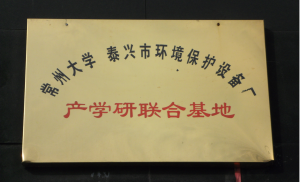 常州大学 泰兴市环境保护设备厂
产学研联合基地